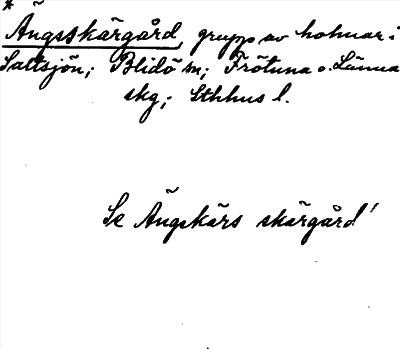 *
Ängsskärgård, grupp av holmar i
Saltsjön; Blidö sn; Frötuna o. Länna
skg; Sthhus l.
Se Ängskärs skärgård!